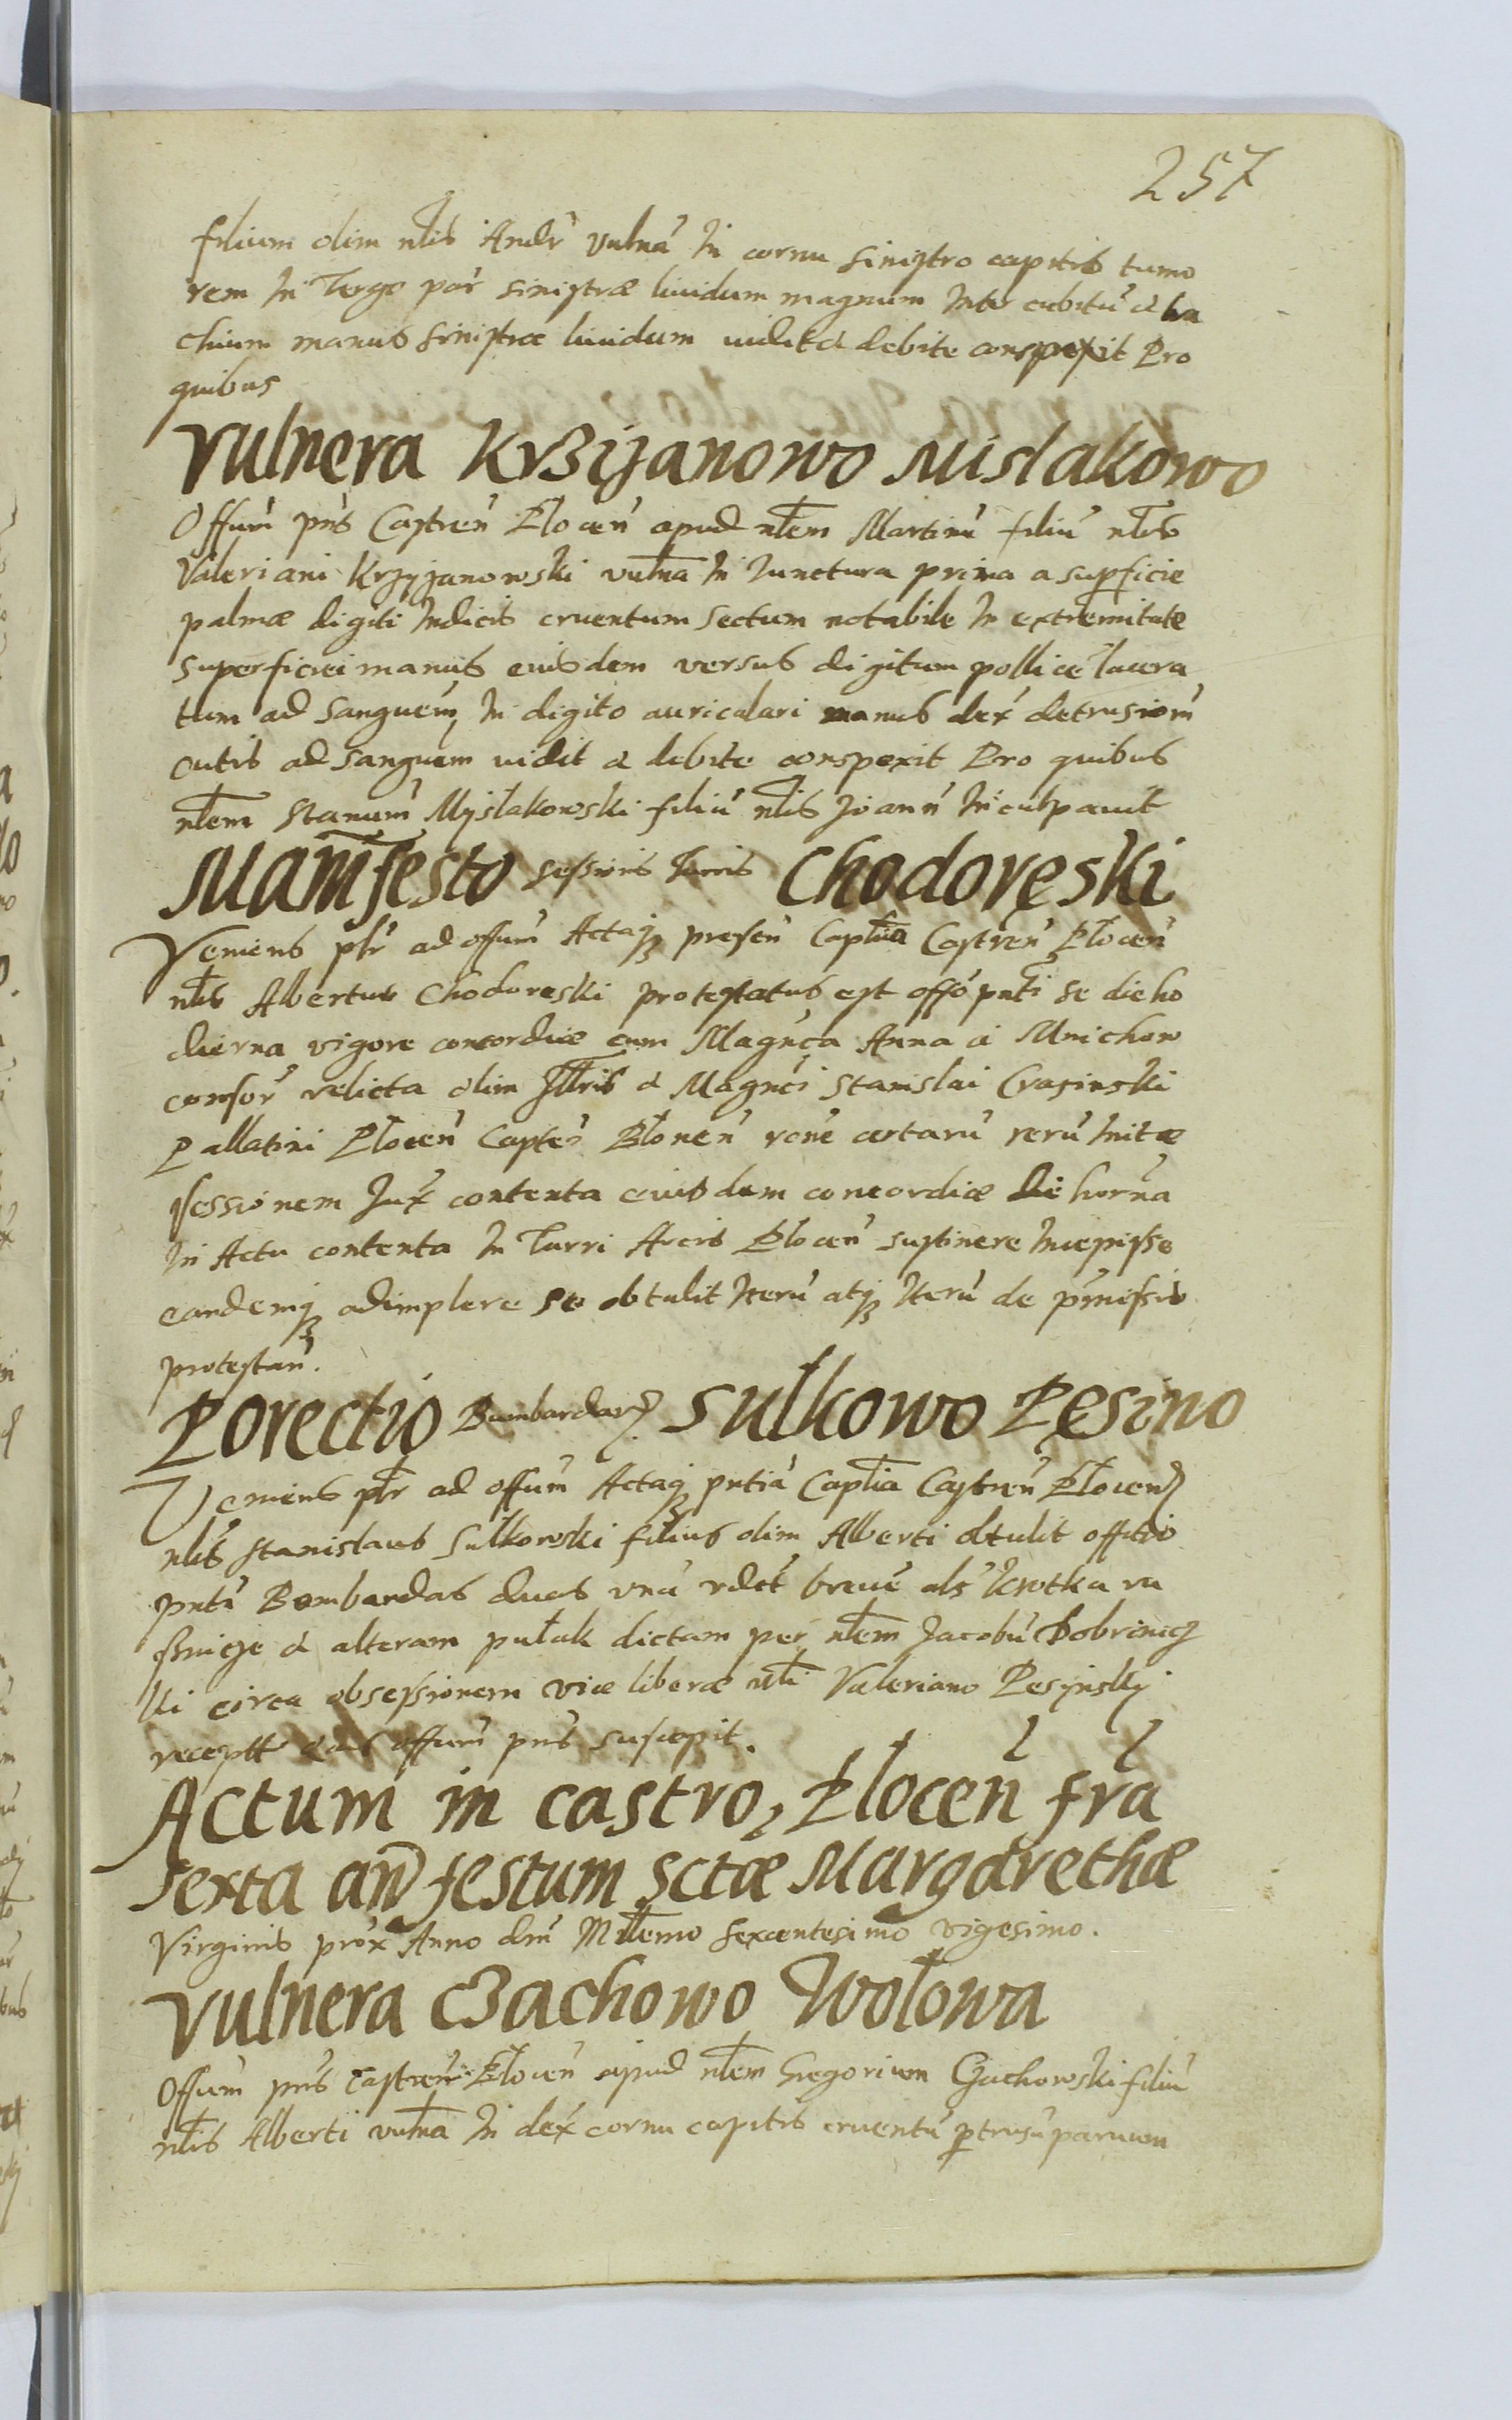 257
filium olim nłis Andr̃ vulna̋ In cornu sinistro capitis tumo
rem In Tergo par̃ sinistræ liuidum magnum Inter cubitũ et bra
chium manus sinistræ liuidum uidit et debite conspexit Pro
quibus
Vulnera Krzÿanowo Mislakowo
Offum̃ pñs Castreñ Płoceñ apud nłem Martinũ filiũ nłis
Valeriani Krzyżanowski vulña In Iunctura prima a supficie
palmæ digiti Indicis cruentum sectum notabile In extremitate
superficiei manus eiusdem versus digitum pollicẽ lacera
tum ad sanguem̃ In digito auriculari manus dex̃ detrusiom̃
cutis ad sanguem uidit et debite conspexit Pro quibus
nłem Stanum̃ Myslakowski filiũ nłis Joanñ Inculpauit
Manifesto sessionis Turris Chodoręski
Veniens płr ad offum̃ Actaqȝ preseñ Capłia Castreñ Płoceñ
nłis Albertus Chodoreski protestatus est offõ pñti se die ho
dierna vigore concordiæ cum Magñca Anna a Mnichow
consor̃ relicta olim Jllris et Magñci Stanislai Crasinski
Pallatini Płoceñ Capteĩ Błoneñ rone certarũ rerũ Initæ
sessionem Jux̃ contenta eiusdem concordiæ die horña
In Actu contenta In Turri Arcis Płoceñ sustinere Incepisse
eandemqȝ adimplere se obtulit Iterũ atqȝ Iterũ de pr̃missis
protestañ.
Porectio Bumbardarȝ Sułkowo Pęsino
Veniens płr ad offum̃ Actaqȝ pntiã Capłia Castreñ Płoceñ
nłis Stanislaus Sułkowski filius olim Alberti obtulit officio
pnti Bombardas duas vnã vdet̃ breuẽ als̃ krotka ru
sznicę et alteram pułak dictam per nłem Jacobũ Dobrinic
ki circa obsessionem viæ liberæ nłi Valeriano Pesynsky
recept̃ eas offum̃ pñs suscepit.
Actum in castro Płoceñ fr̃a
sexta añ festum sctæ Margarethæ
Virginis prox̃ Anno dñi Miłłemo sexcentesimo vigesimo.
Vulnera Czachowo Wołowa
Offum pñs Castreñ Płoceñ apud nłem Gregorium Czachowski filiũ
nłis Alberti vulña In dex̃ cornu capitis cruentũ ptrusũ paruum